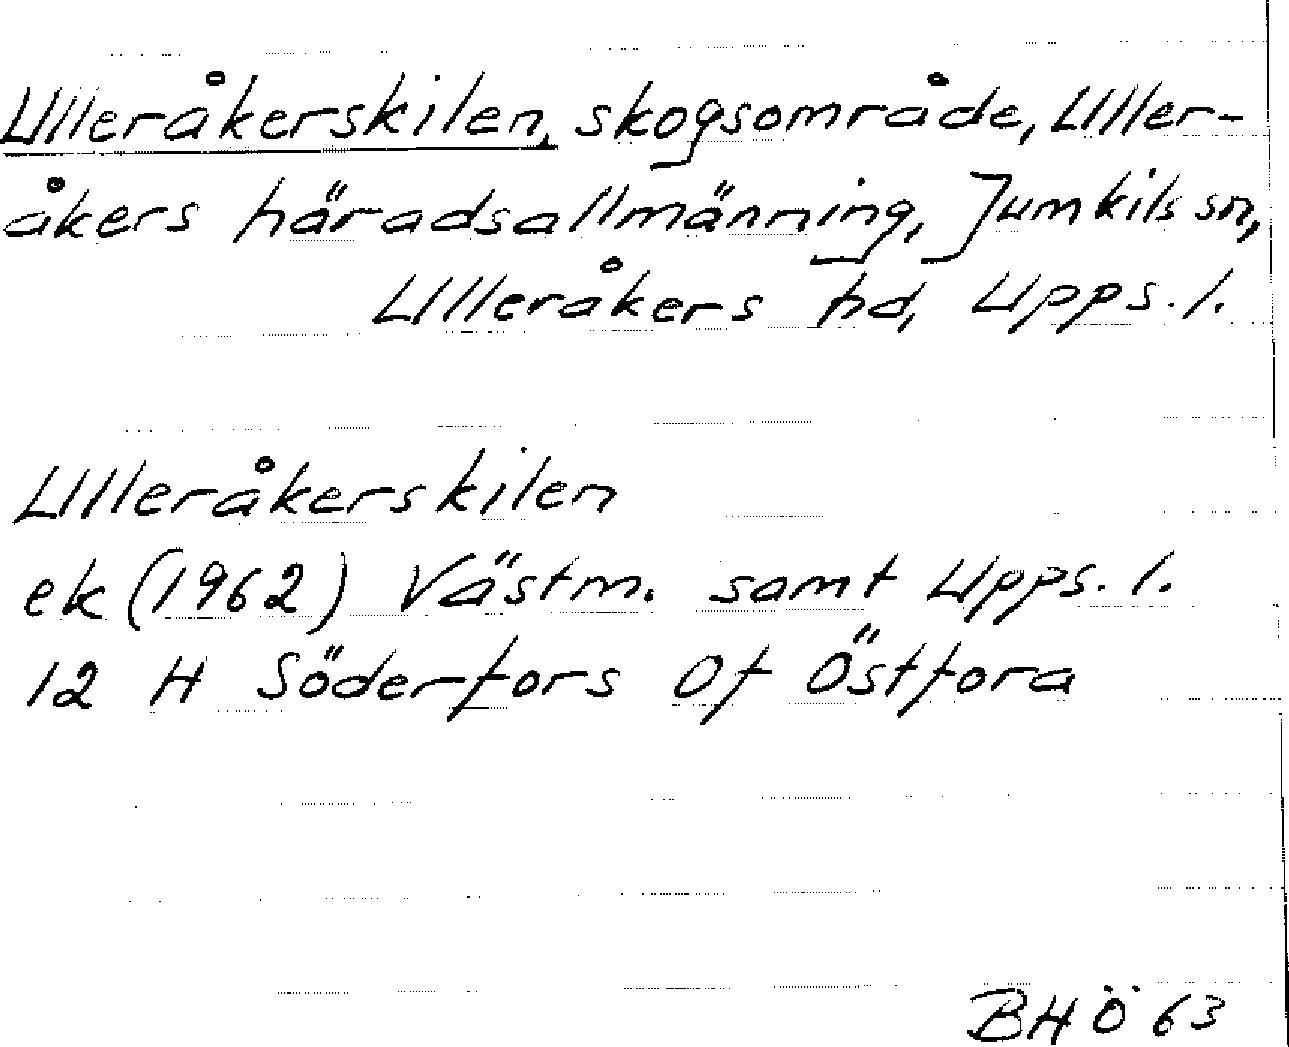 Ulleråkerskilen, skogsområde, Uller-
åkers häradsallmänning, Jumkils sn,
Ulleråkers hd, Upps. l.
Ulleråkerskilen
ek (1962) Västm. samt Upps. l.
12 H Söderfors Of Östfora
BHÖ 63